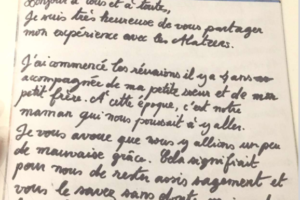 Bonjour à tous et à toutes,
Je suis très heureuse de vous partager
mon expérience avec les Alateens.
J'ai commencé les réunions il y a 4 ans
accompagnée de ma petite sœur et de mon
petit frère. A cette époque, c'est notre
maman qui nous poussait à y aller.
Je vous avoue que nous y allions un peu
de mauvaise grâce. Cela signifiait
pour nous de rester assis sagement et
vous le savez sans doute